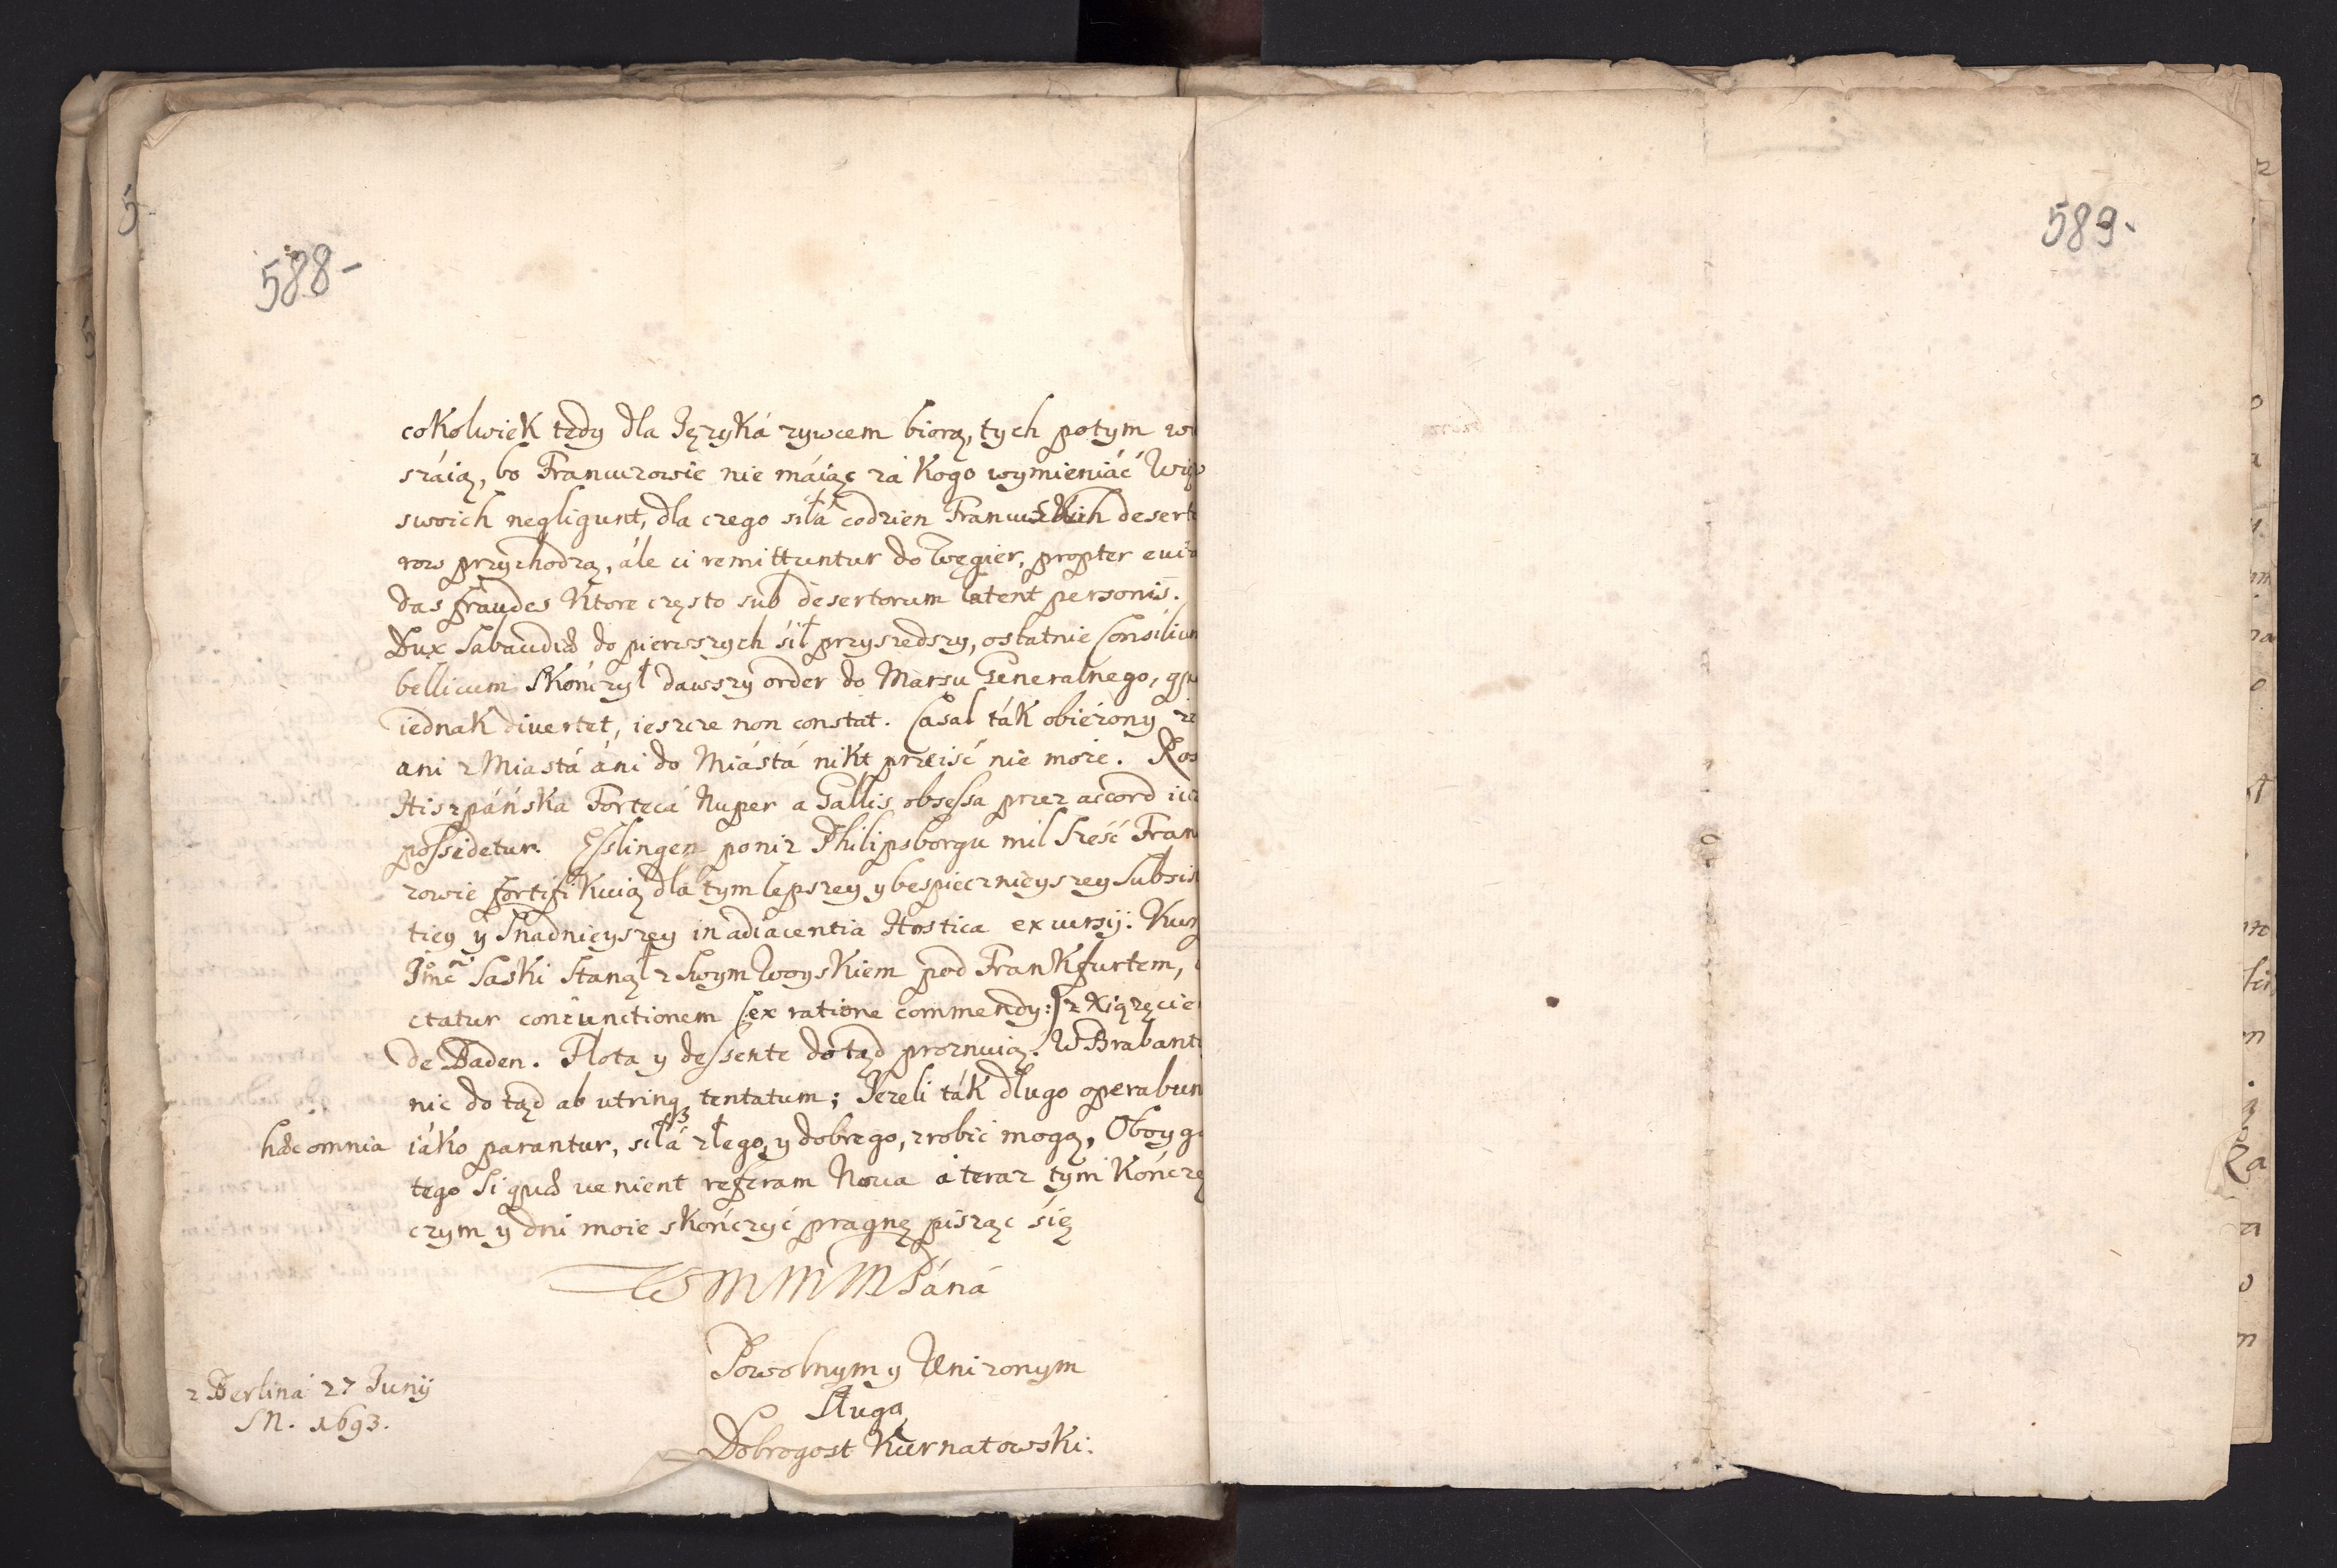 588-
589-
cokolwiek tedy dla Języká zywcem biorą, tych potym
száią, bo Francuzowie nie máiąc zá kogo wymieniáć
swoich negligunt, dla czego siłá codzien Francuskich deserto
row przychodzą, ále ci remittuntur do Węgier, propter
das fraudes ktore często sub desertorum latent personis.
Dux Sabaudiæ do pierwszych sił przyszedszy, ostatnie Consilium
bellicum skończył dawszy order do Marsu Generalnego,
iednak divertet, ieszcze non constat. Casal ták obieżony
ani z Miastá áni do Miástá nikt przeiść nie może.
Hiszpáńska Fortecá Nuper a Gallis obsessa przez accord
possidetur. Esslingen poniż Philipsborgu mil sześć Fran
zowie fortifikuią dla tym lepszey y bespiecznieyszey subsis
ticy y snadnieyszey in adiacentia Hostica excursij.
Jmć Saski stanął z swym Woyskiem pod Frankfurtem,
ctatur coniunctionem (ex ratione commendy:) z Xiązęciem
de Baden. Flota y dessente dotąd proznuią. W Brabanty
nic do tąd ab utrinq tentatum; Jezeli ták długo operabun
hæc omnia iáko parantur, siłá złego, y dobrego, zrobić mogą,
tego Si quæ venient referam Nova a teraz tym kończę
czym y dni moie skończyć pragnę pisząc się
WMMM Páná
Powolnym y Unizonym
Sługą
Dobrogost Kurnatowski.
z Berlina 27 Junij
SN. 1693.